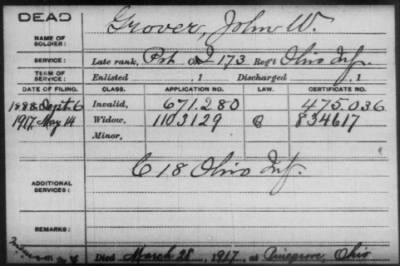 DEAD
NAME OF SOLDIER: Grover, John W.
SERVICE: Late rank, Pvt. Co. I 173 Reg't Ohio Inf.
TERM OF SERVICE: Enlisted , 1 Discharged , 1
DATE OF FILING. CLASS. APPLICATION NO. LAW. CERTIFICATE NO.
1888 Sept. 6 Invalid, 671.280 475.036
1917 May 14 Widow, 1103129 834617
Minor,
ADDITIONAL SERVICES: C 18 Ohio Inf.
REMARKS:
Died March 28, 1917, at Pinegrove, Ohio